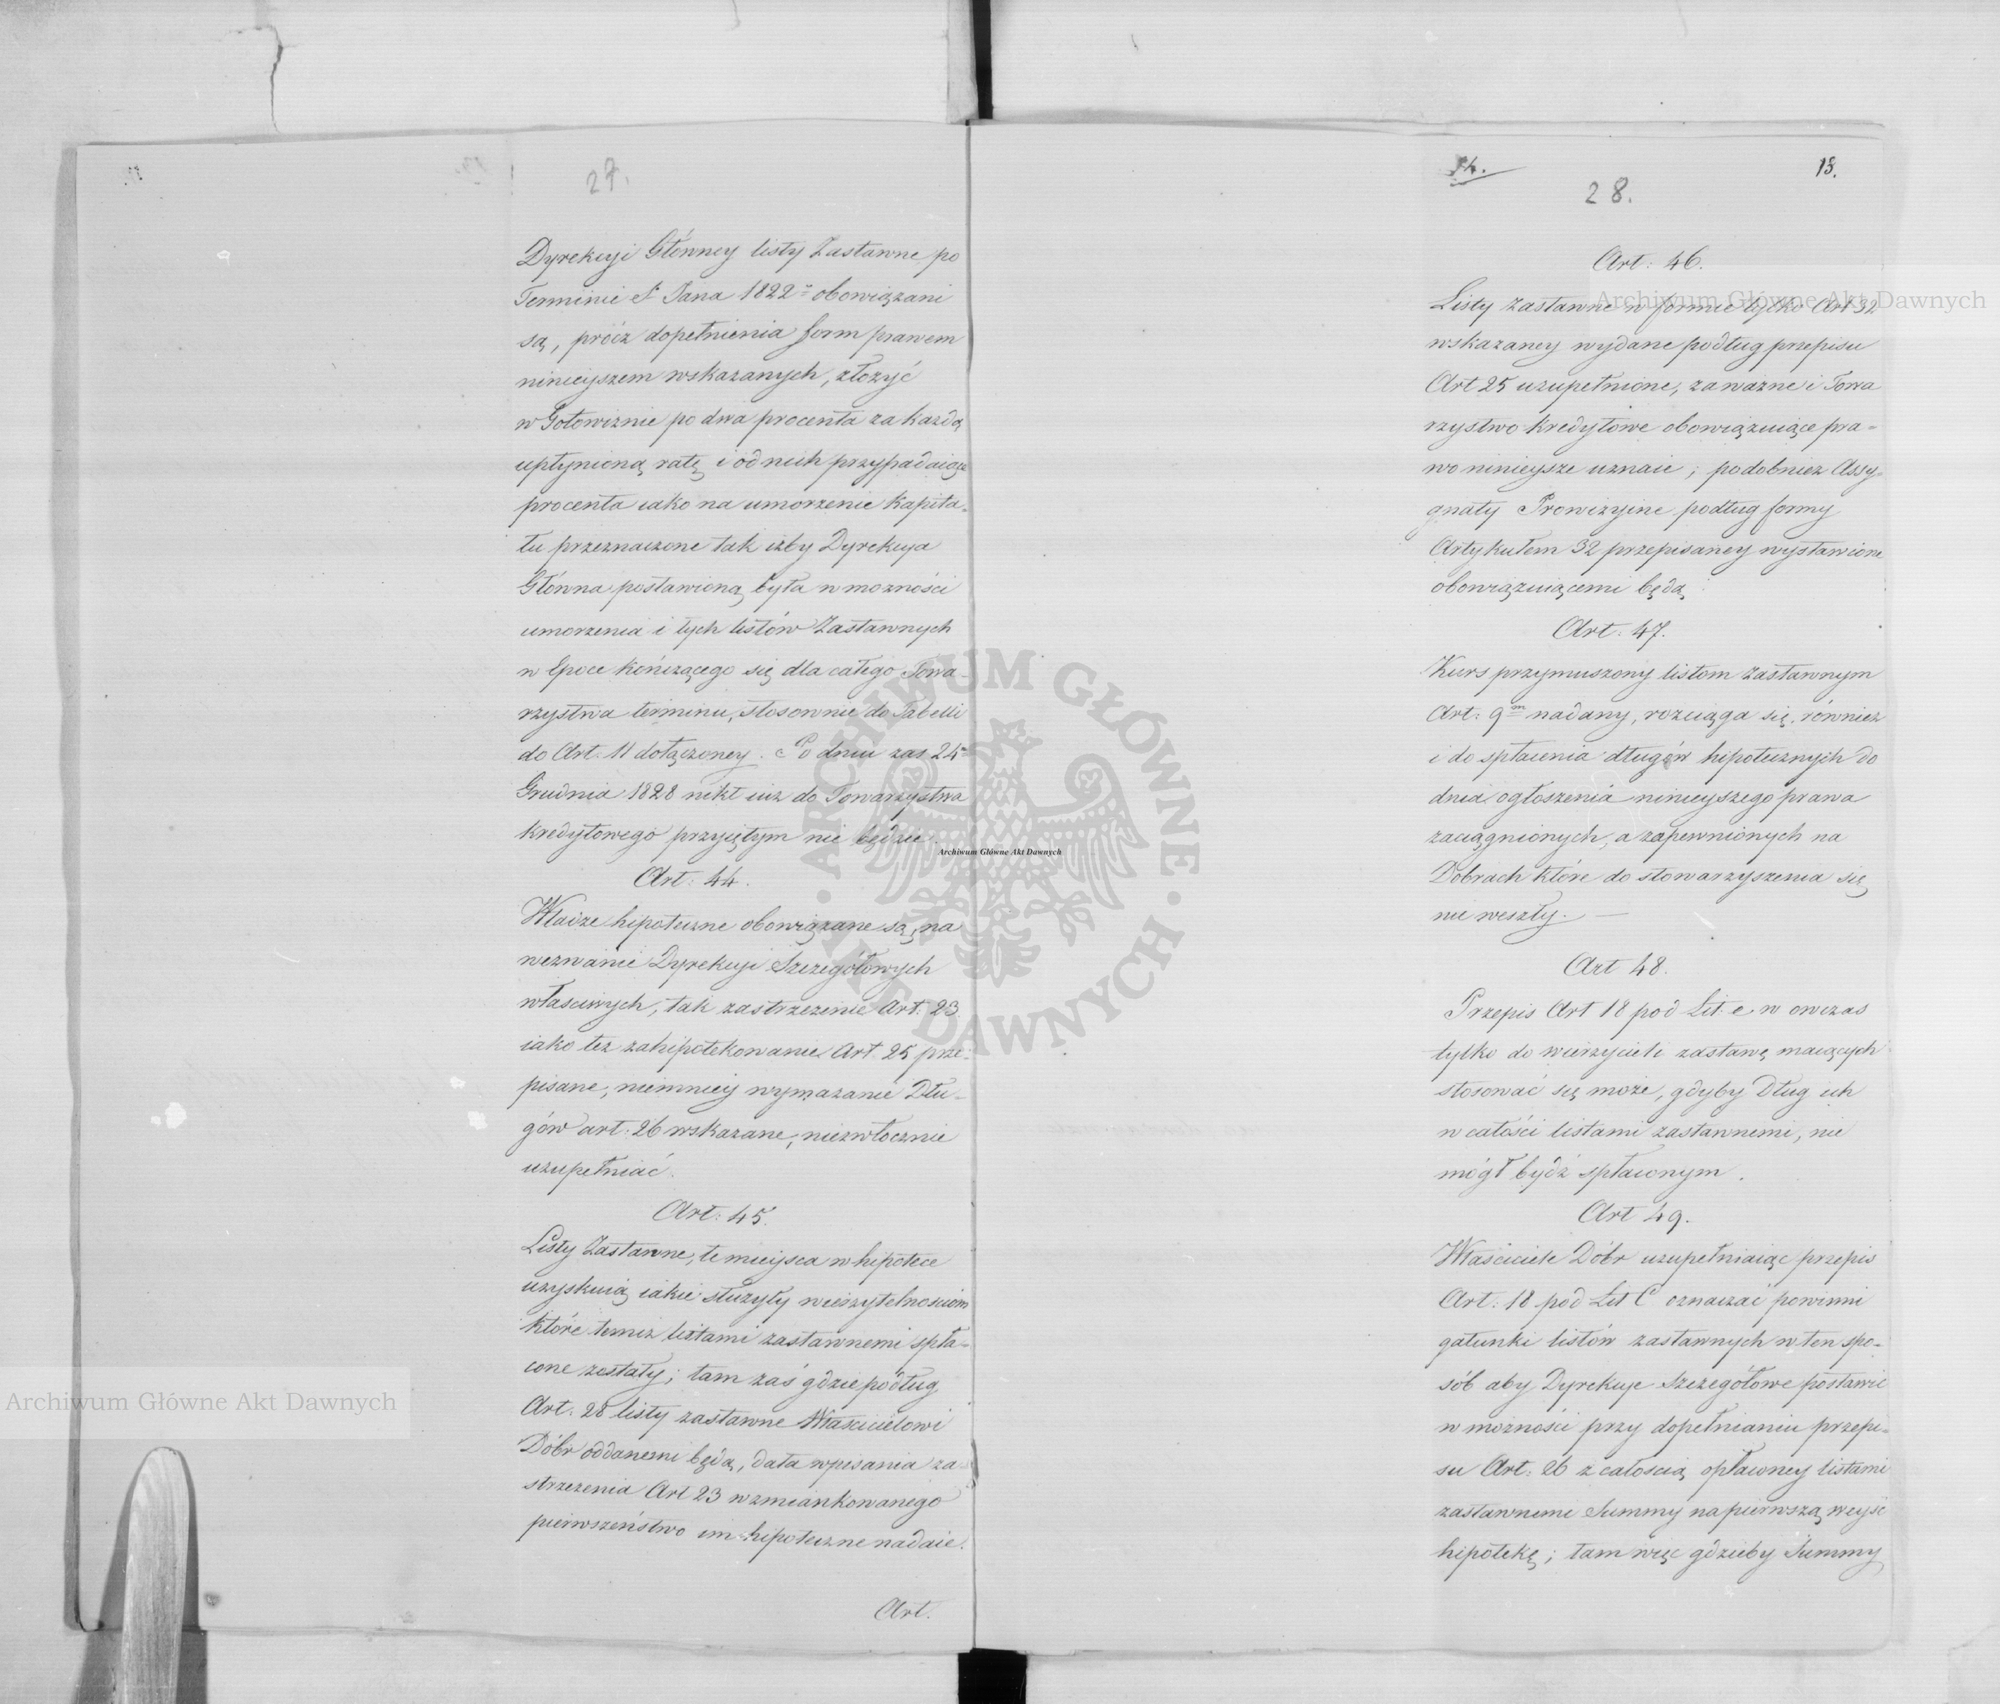 27.
Dyrekcyi Główney listy Zastawne po
Terminie St Jana 1822 obowiązani
są, prócz dopełnienia form prawem
ninieyszem wskazanych, złożyć
w Gotowiznie po dwa procenta za każdą
upłynioną ratę i od nich przypadaiące
procenta iako na umorzenie Kapita-
łu przeznaczone tak iżby Dyrekcya
Główna postawioną była w możności
umorzenia i tych listów Zastawnych
w Epoce kończącego się dla całego Towa-
rzystwa terminu, stosownie do Tabelli
do Art. 11 dołączoney. Po dniu zas 24
Grudnia 1828 nikt iuż do Towarzystwa
kredytowego przyiętym nie będzie.
Art: 44.
Władze hipoteczne obowiązane są, na
wezwanie Dyrekcyi Szczegółowych
właściwych, tak zastrzeżenie Art. 23
iako też zahipotekowanie Art. 25 prze-
pisane, niemniey wymazanie Dłu-
gów art. 26 wskazane, niezwłocznie
uzupełniać.
Art: 45.
Listy Zastawne, te mieysca w hipotece
uzyskuią iakie służyły wierzytelnościom
które temiż listami zastawnemi spła-
cone zostały; tam zaś gdzie podług
Art: 28 listy zastawne Właścicielowi
Dóbr oddanemi będą, data wpisania za-
strzeżenia Art 23 wzmiankowanego
pierwszeństwo im hipoteczne nadaie.
Art.
14.
15.
28.
Art: 46.
Listy zastawne w formie tylko Art 32
wskazaney wydane podług przepisu
Art 25 uzupełnione, za ważne i Towa
rzystwo kredytowe obowiązuiące pra-
wo ninieysze uznaie; podobnież Assy-
gnaty Prowizyine podług formy
Artykułem 32 przepisaney wystawione
obowiązuiącemi będą
Art: 47.
Kurs przymuszony listom zastawnym
Art: 9m nadany, rozciąga się, również
i do spłacenia długów hipotecznych do
dnia ogłoszenia ninieyszego prawa
zaciągnionych, a zapewnionych na
Dobrach które do stowarzyszenia się
nie weszły. —
Art 48.
Przepis Art 18 pod Lit. e w owczas
tylko do wierzycieli zastawę maiących
stosować się może, gdyby Dług ich
w całości listami zastawnemi, nie
mógł bydź spłaconym.
Art 49.
Właściciele Dóbr uzupełniaiąc przepis
Art: 18 pod Lit C oznaczać powinni
gatunki listów zastawnych w ten spo-
sób aby Dyrekcye Szczegółowe postawić
w możności przy dopełnianiu przepi-
su Art: 26 z całością opłaconey listami
zastawnemi Summy na pierwszą weyść
hipotekę; tam więc gdzieby Summy
Archiwum Główne Akt Dawnych
Archiwum Główne Akt Dawnych
Archiwum Główne Akt Dawnych
ARCHIWUM GŁÓWNE AKT DAWNYCH